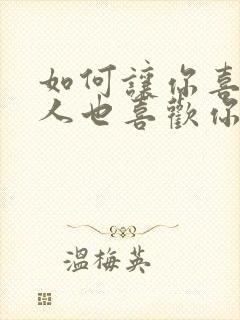 如何讓你喜
人也喜歡你
溫梅英